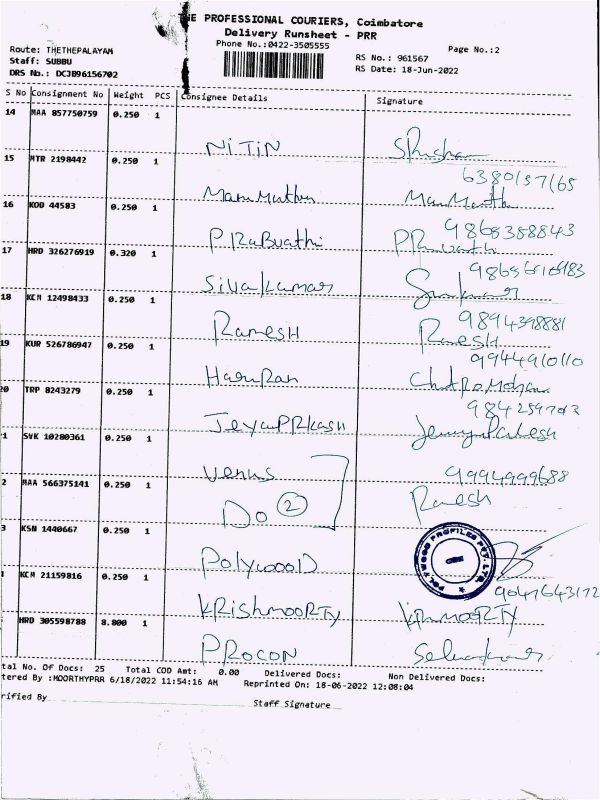 THE PROFESSIONAL COURIERS, Coimbatore
Delivery Runsheet - PRR
Phone No.:0422-3505555
Page No.:2
Route: THETHEPALAYAM
Staff: SUBBU
DRS No.: DCJB96156702
RS No.: 961567
RS Date: 18-Jun-2022
S No Consignment No Weight PCS Consignee Details Signature
14 MAA 857750759 0.250 1
NITIN
15 MTR 2198442 0.250 1
16 KOD 44583 0.250 1
17 HRD 326276919 0.320 1
Sivakumar
18 KCM 12498433 0.250 1
Ramesh Ramesh
19 KUR 526786947 0.250 1
9944910110
Hariran
20 TRP 8243279 0.250 1
1 SVK 10280361 0.250 1
Venus 9994999688
2 MAA 566375141 0.250 1
Do 2 Ramesh
3 KSN 1440667 0.250 1
POLYWOOD PROFILES PVT. LTD.
Polywood
KCM 21159816 0.250 1
9047643172
KRISHMOORTY
HRD 305598788 8.800 1
PROCON
tal No. Of Docs: 25 Total COD Amt: 0.00 Delivered Docs: Non Delivered Docs:
tered By :MOORTHYPRR 6/18/2022 11:54:16 AM Reprinted On: 18-06-2022 12:08:04
rified By Staff Signature